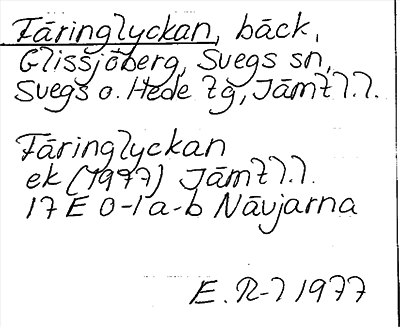 Täringlyckan, bäck,
Glissjöberg, Svegs sn,
Svegs o. Hede tg, Jämtl.l.
Täringlyckan
ek (1977) Jämtl.l.
17 E 0-1 a-b Nävjarna
E. R-l 1977